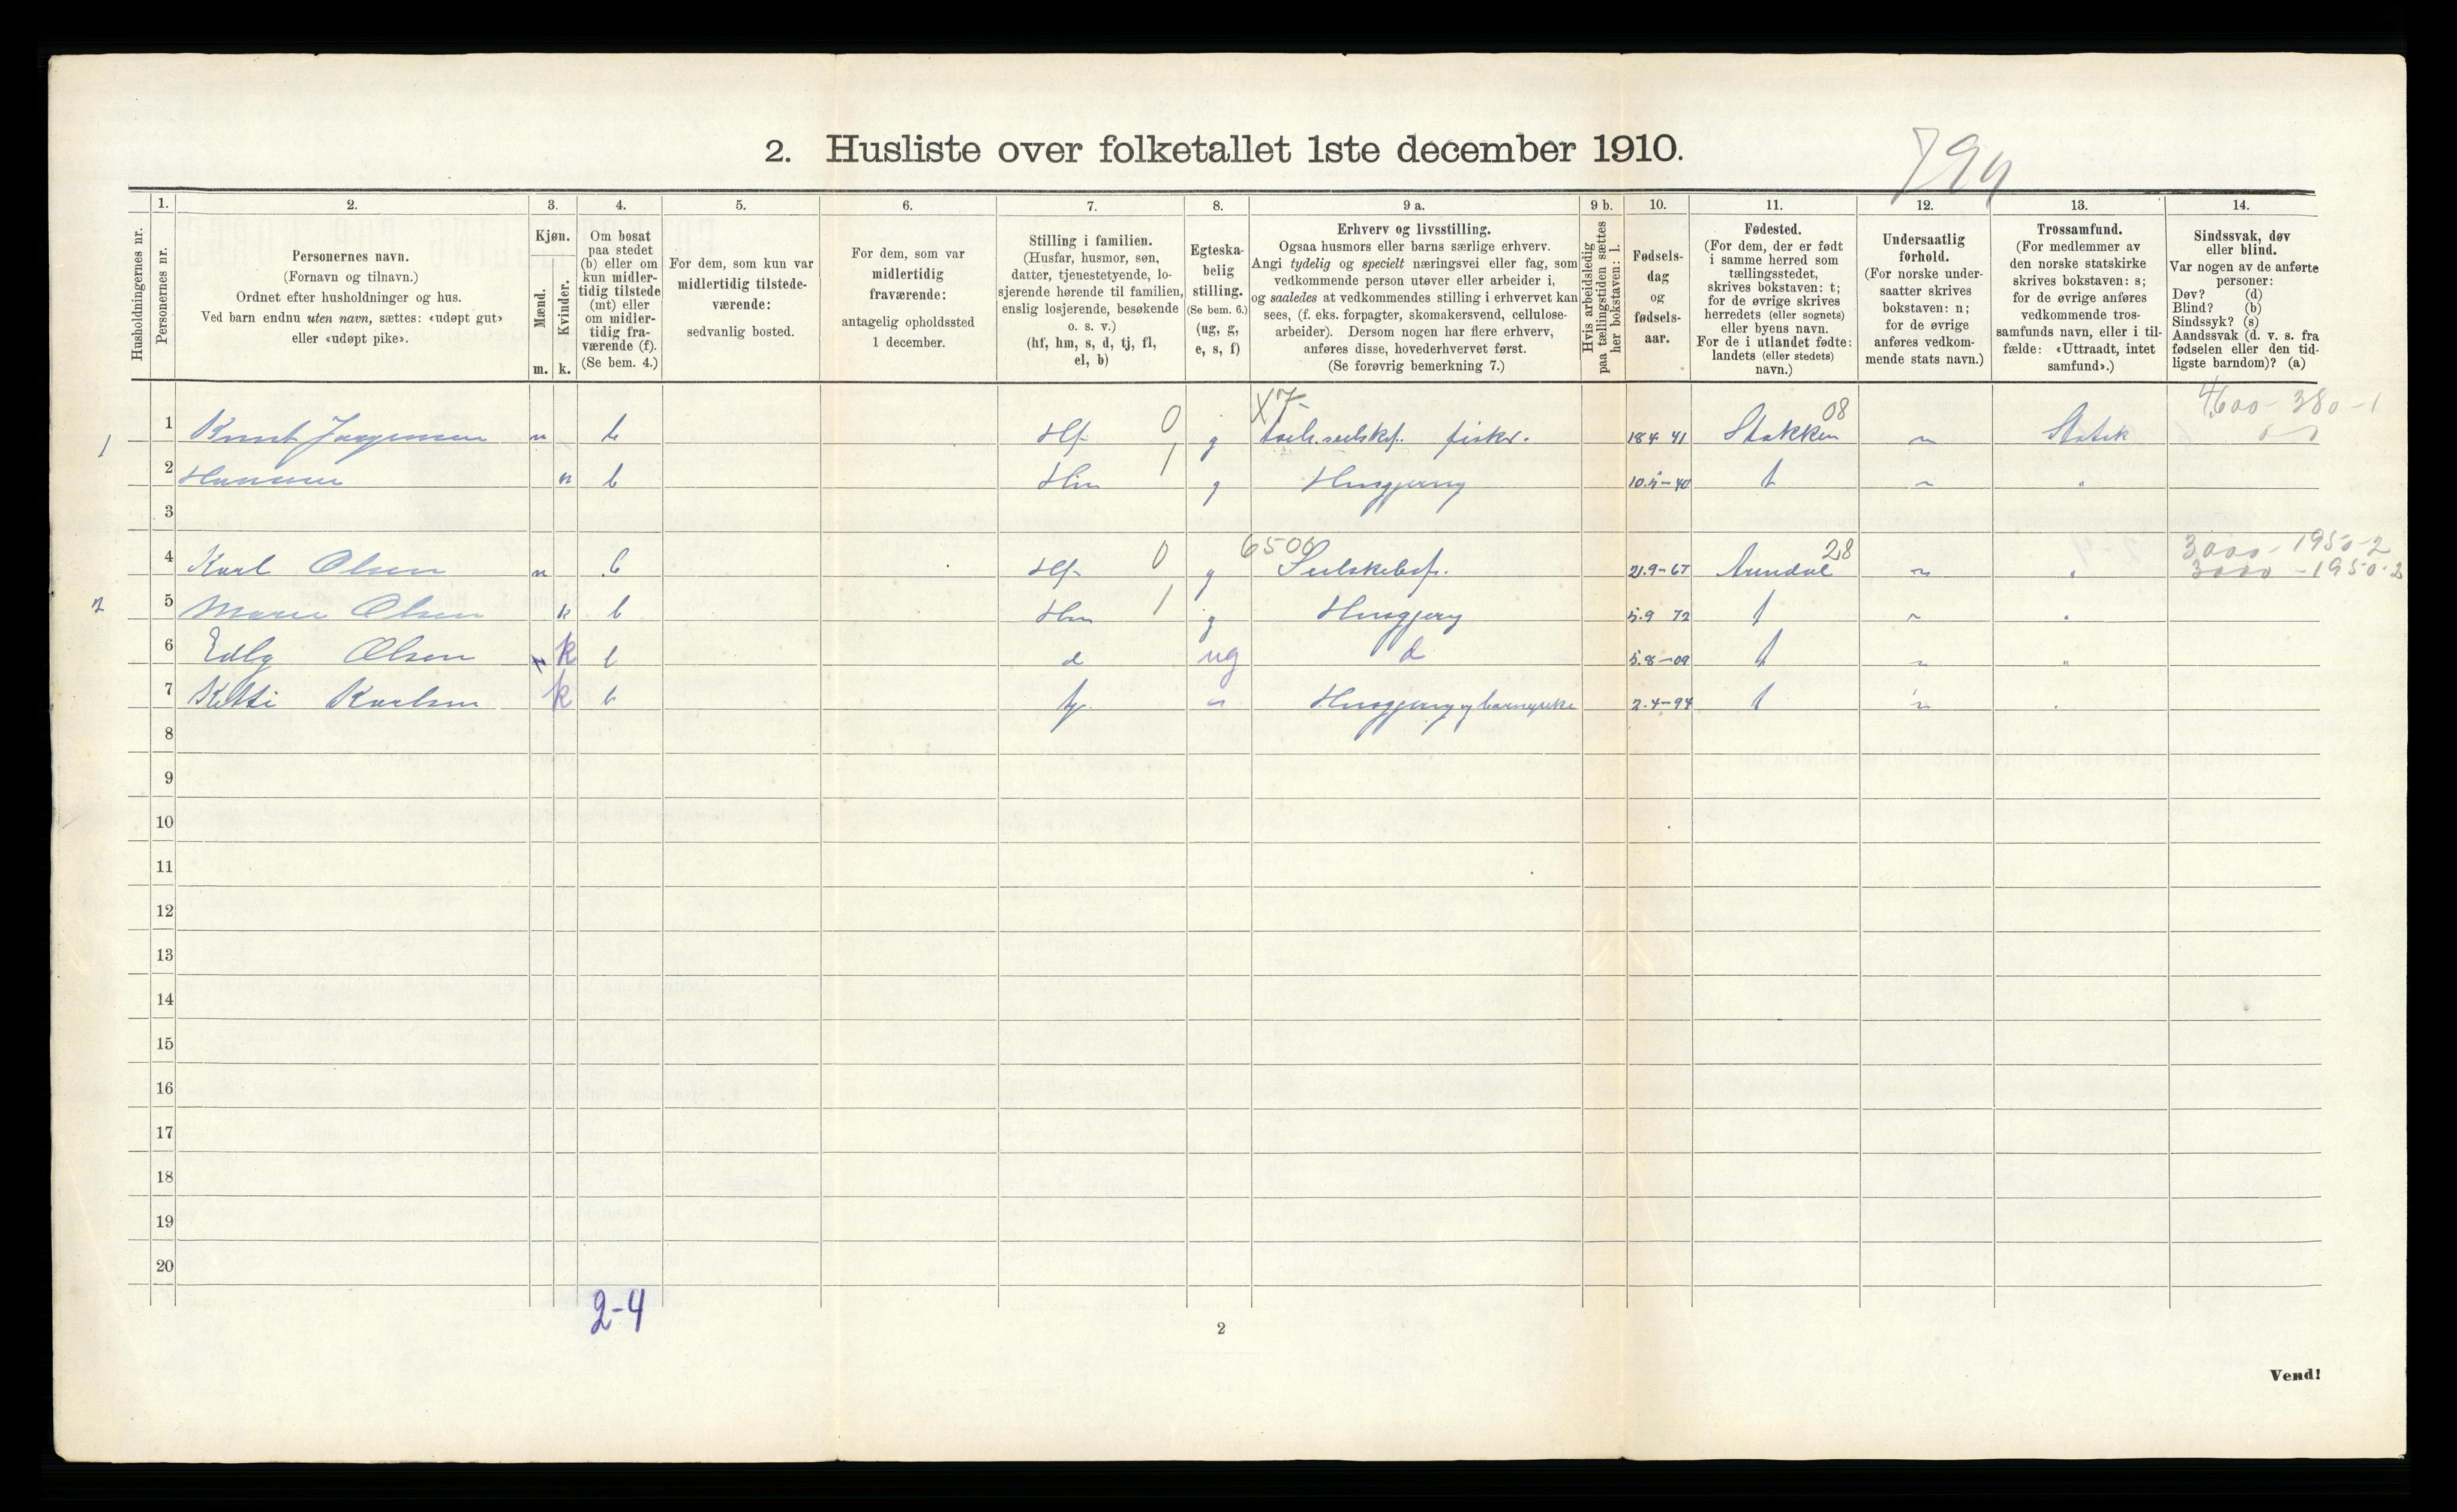 2. Husliste over folketallet 1ste december 1910.
794
1. 2. 3. 4. 5. 6. 7. 8. 9 a. 9 b. 10. 11. 12. 13. 14.
Husholdningernes nr.
Personernes nr.
Personernes navn.
(Fornavn og tilnavn.)
Ordnet efter husholdninger og hus.
Ved barn endnu uten navn, sættes: «udøpt gut»
eller «udøpt pike».
Kjøn.
Mænd.
Kvinder.
m. k.
Om bosat
paa stedet
(b) eller om
kun midler-
tidig tilstede
(mt) eller
om midler-
tidig fra-
værende (f).
(Se bem. 4.)
For dem, som kun var
midlertidig tilstede-
værende:
sedvanlig bosted.
For dem, som var
midlertidig
fraværende:
antagelig opholdssted
1 december.
Stilling i familien.
(Husfar, husmor, søn,
datter, tjenestetyende, lo-
sjerende hørende til familien,
enslig losjerende, besøkende
o. s. v.)
(hf, hm, s, d, tj, fl,
el, b)
Egteska-
belig
stilling.
(Se bem. 6.)
(ug, g,
e, s, f)
Erhverv og livsstilling.
Ogsaa husmors eller barns særlige erhverv.
Angi tydelig og specielt næringsvei eller fag, som
vedkommende person utøver eller arbeider i,
og saaledes at vedkommendes stilling i erhvervet kan
sees, (f. eks. forpagter, skomakersvend, cellulose-
arbeider). Dersom nogen har flere erhverv,
anføres disse, hovederhvervet først.
(Se forøvrig bemerkning 7.)
Hvis arbeidsledig
paa tællingstiden sættes
her bokstaven: l.
Fødsels-
dag
og
fødsels-
aar.
Fødested.
(For dem, der er født
i samme herred som
tællingsstedet,
skrives bokstaven: t;
for de øvrige skrives
herredets (eller sognets)
eller byens navn.
For de i utlandet fødte:
landets (eller stedets)
navn.)
Undersaatlig
forhold.
(For norske under-
saatter skrives
bokstaven: n;
for de øvrige
anføres vedkom-
mende stats navn.)
Trossamfund.
(For medlemmer av
den norske statskirke
skrives bokstaven: s;
for de øvrige anføres
vedkommende tros-
samfunds navn, eller i til-
fælde: «Uttraadt, intet
samfund».)
Sindssvak, døv
eller blind.
Var nogen av de anførte
personer:
Døv? (d)
Blind? (b)
Sindssyk? (s)
Aandssvak (d. v. s. fra
fødselen eller den tid-
ligste barndom)? (a)
X7- 08 4600 - 380 - 1
1 1 Knut Jørgensen m b Hf 0 g fiskr. 18 4 41 Stokken n Statsk
2 k b Hm 1 g Husgjerning 10.5-40 t n "
3
6506 28 3000 - 1950-2
4 Karl Olsen m b Hf 0 g 21.9-67 Arendal n " 3000 - 1950-2
2 5 Marie Olsen k b Hm 1 g Husgjerng 5.9 72 t n "
6 Olsen k b d ug d 5.8-09 t n "
7 Kitti Karlsen k b tj " Husgjerng og barnepike 2.4-94 t n "
8
9
10
11
12
13
14
15
16
17
18
19
20
2-4
2
Vend!